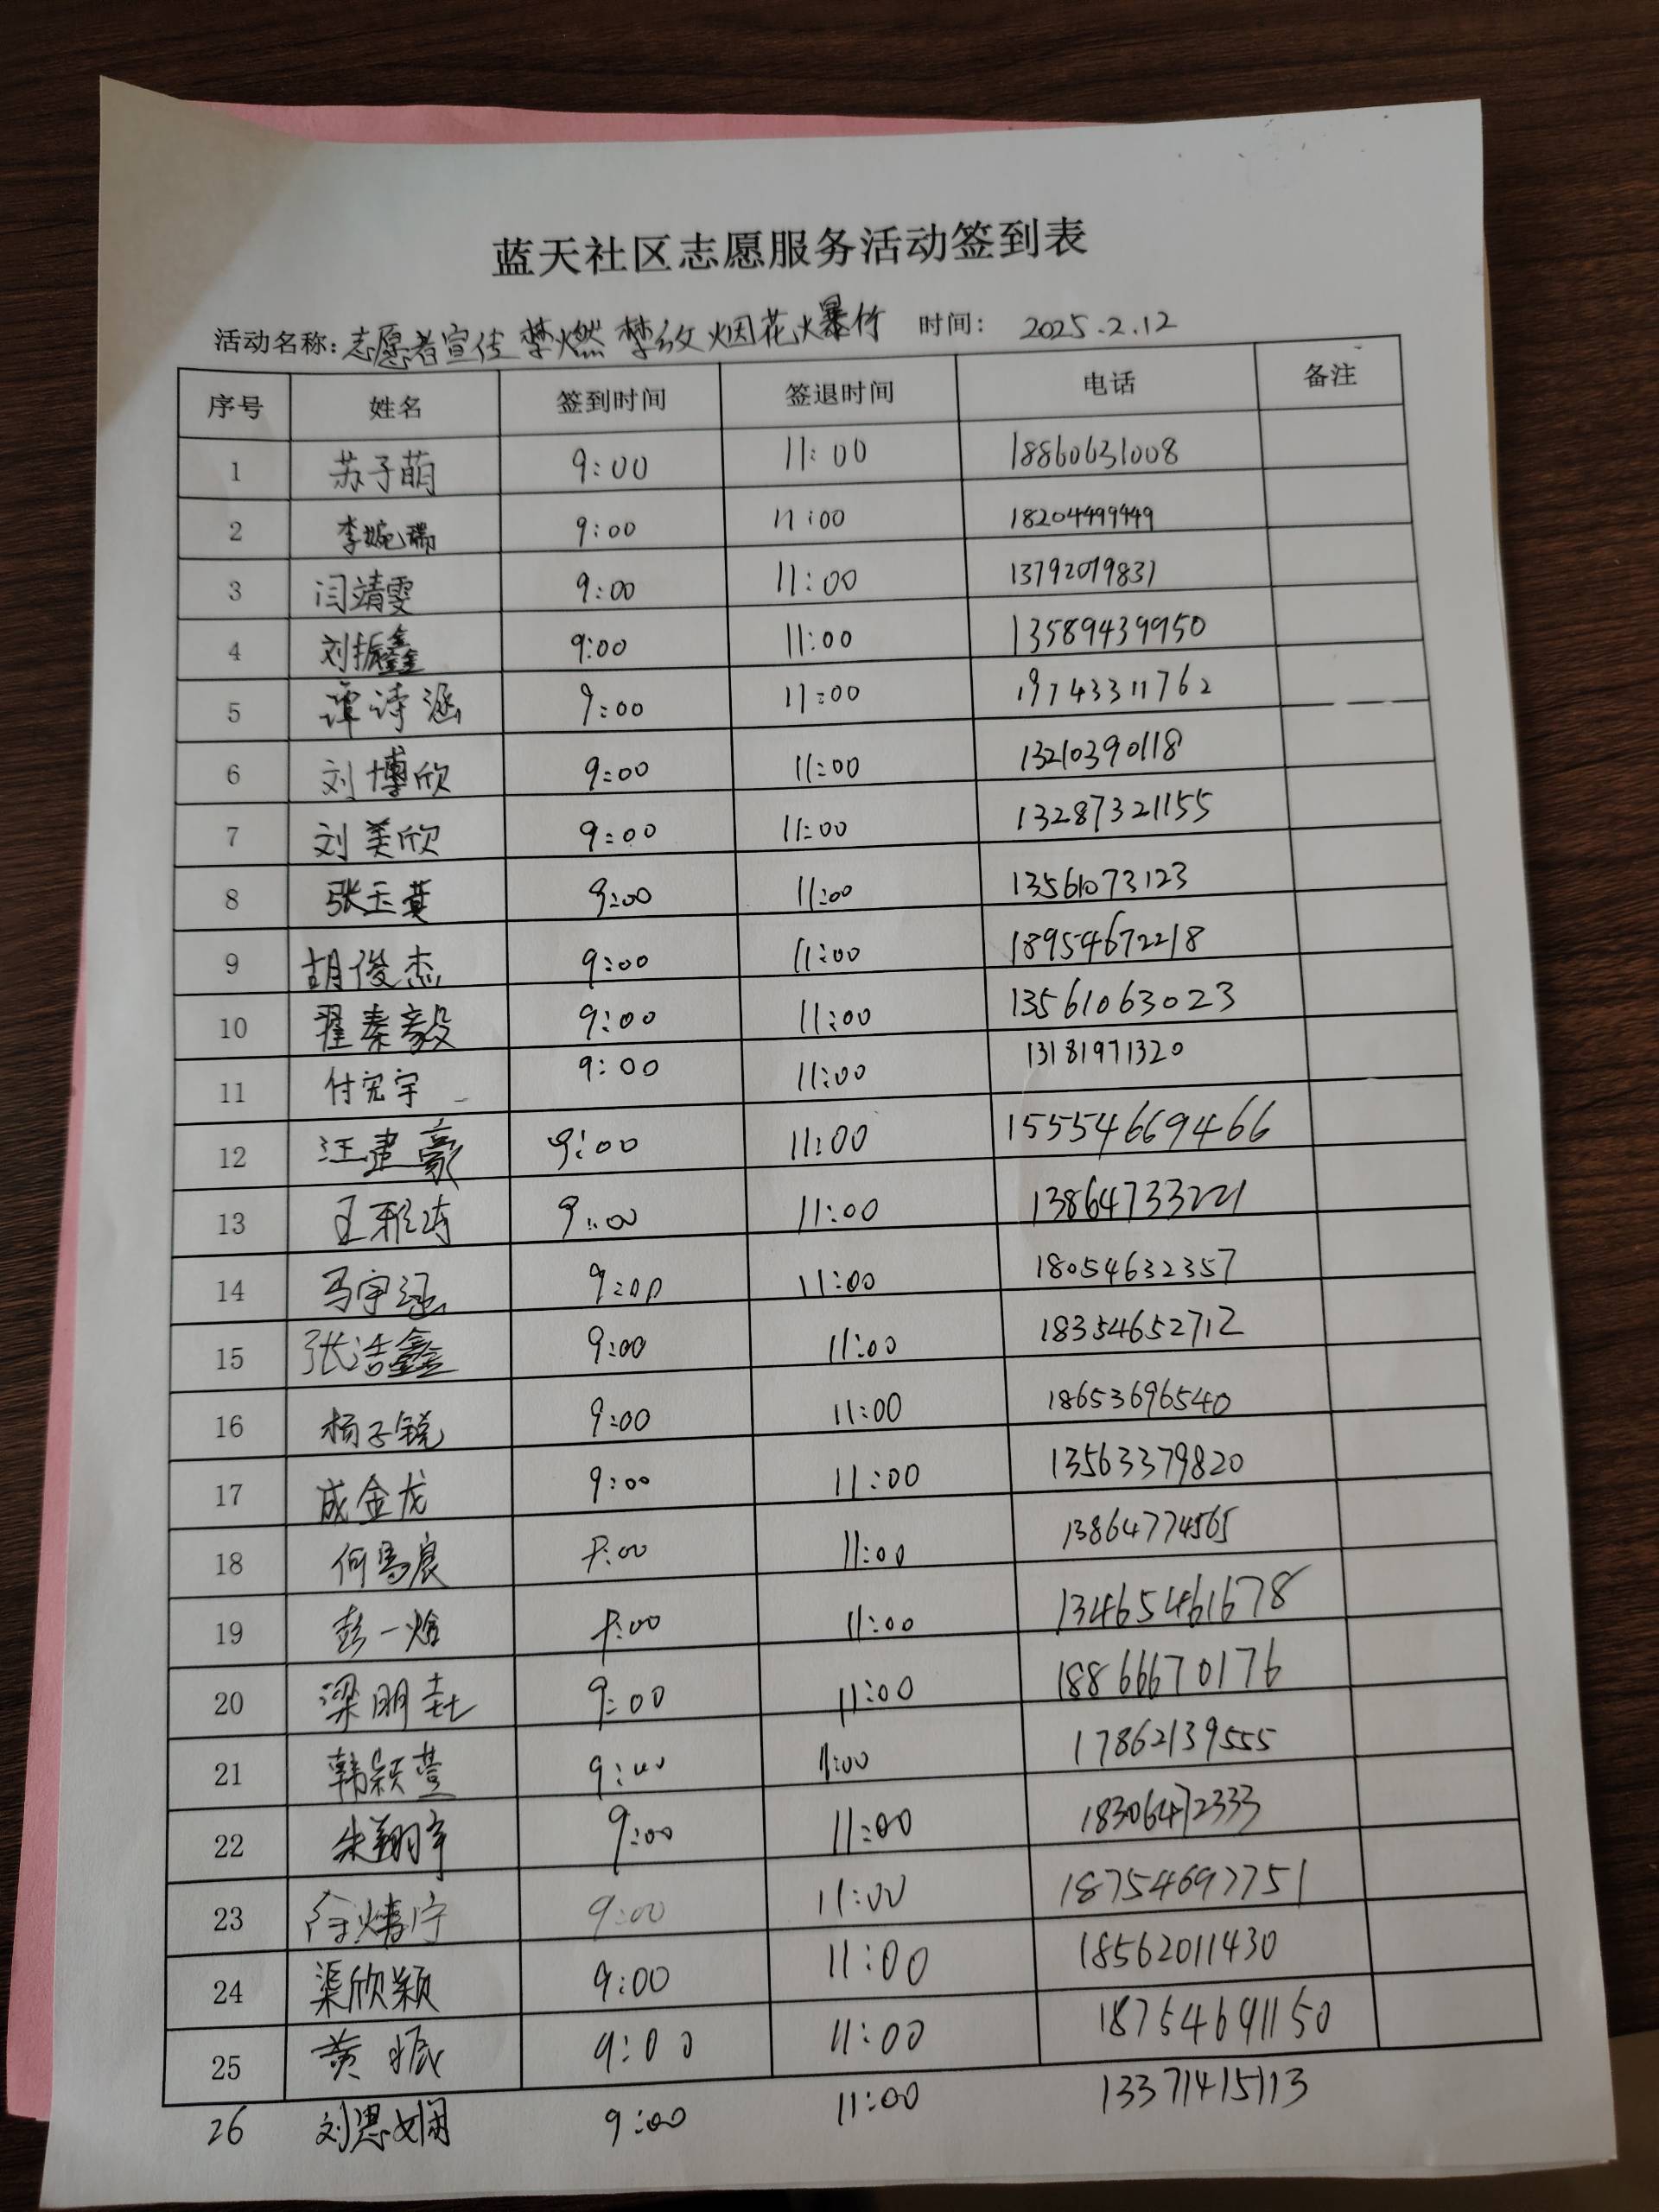 蓝天社区志愿服务活动签到表
活动名称：志愿者宣传禁燃禁放烟花爆竹 时间： 2025.2.12
序号 姓名 签到时间 签退时间 电话 备注
1 苏子萌 9:00 11:00 18860631008
2 李婉瑞 9:00 11:00 18204499449
3 闫靖雯 9:00 11:00 13792079831
4 刘振鑫 9:00 11:00 13589439950
5 谭诗涵 9:00 11:00 19743311762
6 刘博欣 9:00 11:00 13210390118
7 刘美欣 9:00 11:00 13287321155
8 张玉 9:00 11:00 13561073123
9 胡俊杰 9:00 11:00 18954672218
10 翟秦毅 9:00 11:00 13561063023
11 付宏宇 9:00 11:00 13181971320
12 汪建豪 9:00 11:00 15554669466
13 王雅涛 9:00 11:00 13864733221
14 马宇涵 9:00 11:00 18054632357
15 张浩鑫 9:00 11:00 18354652712
16 杨子锐 9:00 11:00 18653696540
17 成金龙 9:00 11:00 13563379820
18 何 9:00 11:00 13864774565
19 彭一 9:00 11:00 13465461678
20 梁明 9:00 11:00 18866670176
21 韩颖萱 9:00 11:00 17862139555
22 朱翔宇 9:00 11:00 18306472333
23 9:00 11:00 18754697751
24 渠欣颖 9:00 11:00 18562011430
25 黄振 9:00 11:00 18754691150
26 刘思娴 9:00 11:00 13371415113